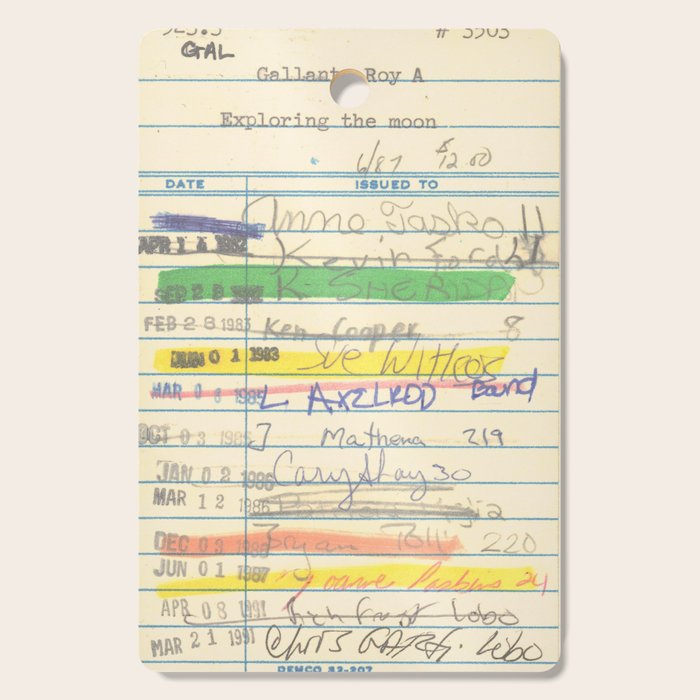 523.3 # 3503
GAL
Gallant, Roy A
Exploring the moon
6/87 $12.00
DATE ISSUED TO
Anne Tasko 11
APR 14 1982 Kevin Ford
SEP 28 K. SHERIDAN
FEB 28 1983 Ken Cooper 8
JUN 01 1983 Sue Willcox
MAR 06 1985 L AXELROD Band
OCT 03 1985 J Mathena 219
JAN 02 1986 Cary Shay 30
MAR 12 1986
DEC 03 1986 Bryan 220
JUN 01 1987 24
APR 08 1991 Lobo
MAR 21 1991 Chris Lobo
DEMCO 32-207